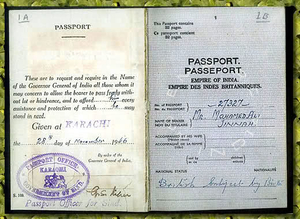 1A
PASSPORT
These are to request and require in the Name
of the Governor General of India all those whom it
may concern to allow the bearer to pass freely without
let or hindrance, and to afford him every
assistance and protection of which he may
stand in need.
Given at KARACHI
the 28th day of November 1946
By order of the
Governor General of India.
PASSPORT OFFICE
KARACHI
GOVERNMENT OF SIND
Passport Officer for Sind
1
1B
This Passport contains
32 pages.
Ce passeport contient
32 pages.
PASSPORT.
PASSEPORT.
EMPIRE OF INDIA.
EMPIRE DES INDES BRITANNIQUES.
No. of PASSPORT
No. du PASSEPORT
27327
NAME OF BEARER
NOM DU TITULAIRE
Mr. Mahomed Ali
JINNAH
ACCOMPANIED BY HIS WIFE
ACCOMPAGNE DE SA FEMME
NATIONAL STATUS
NATIONALITÉ
British Subject by Birth